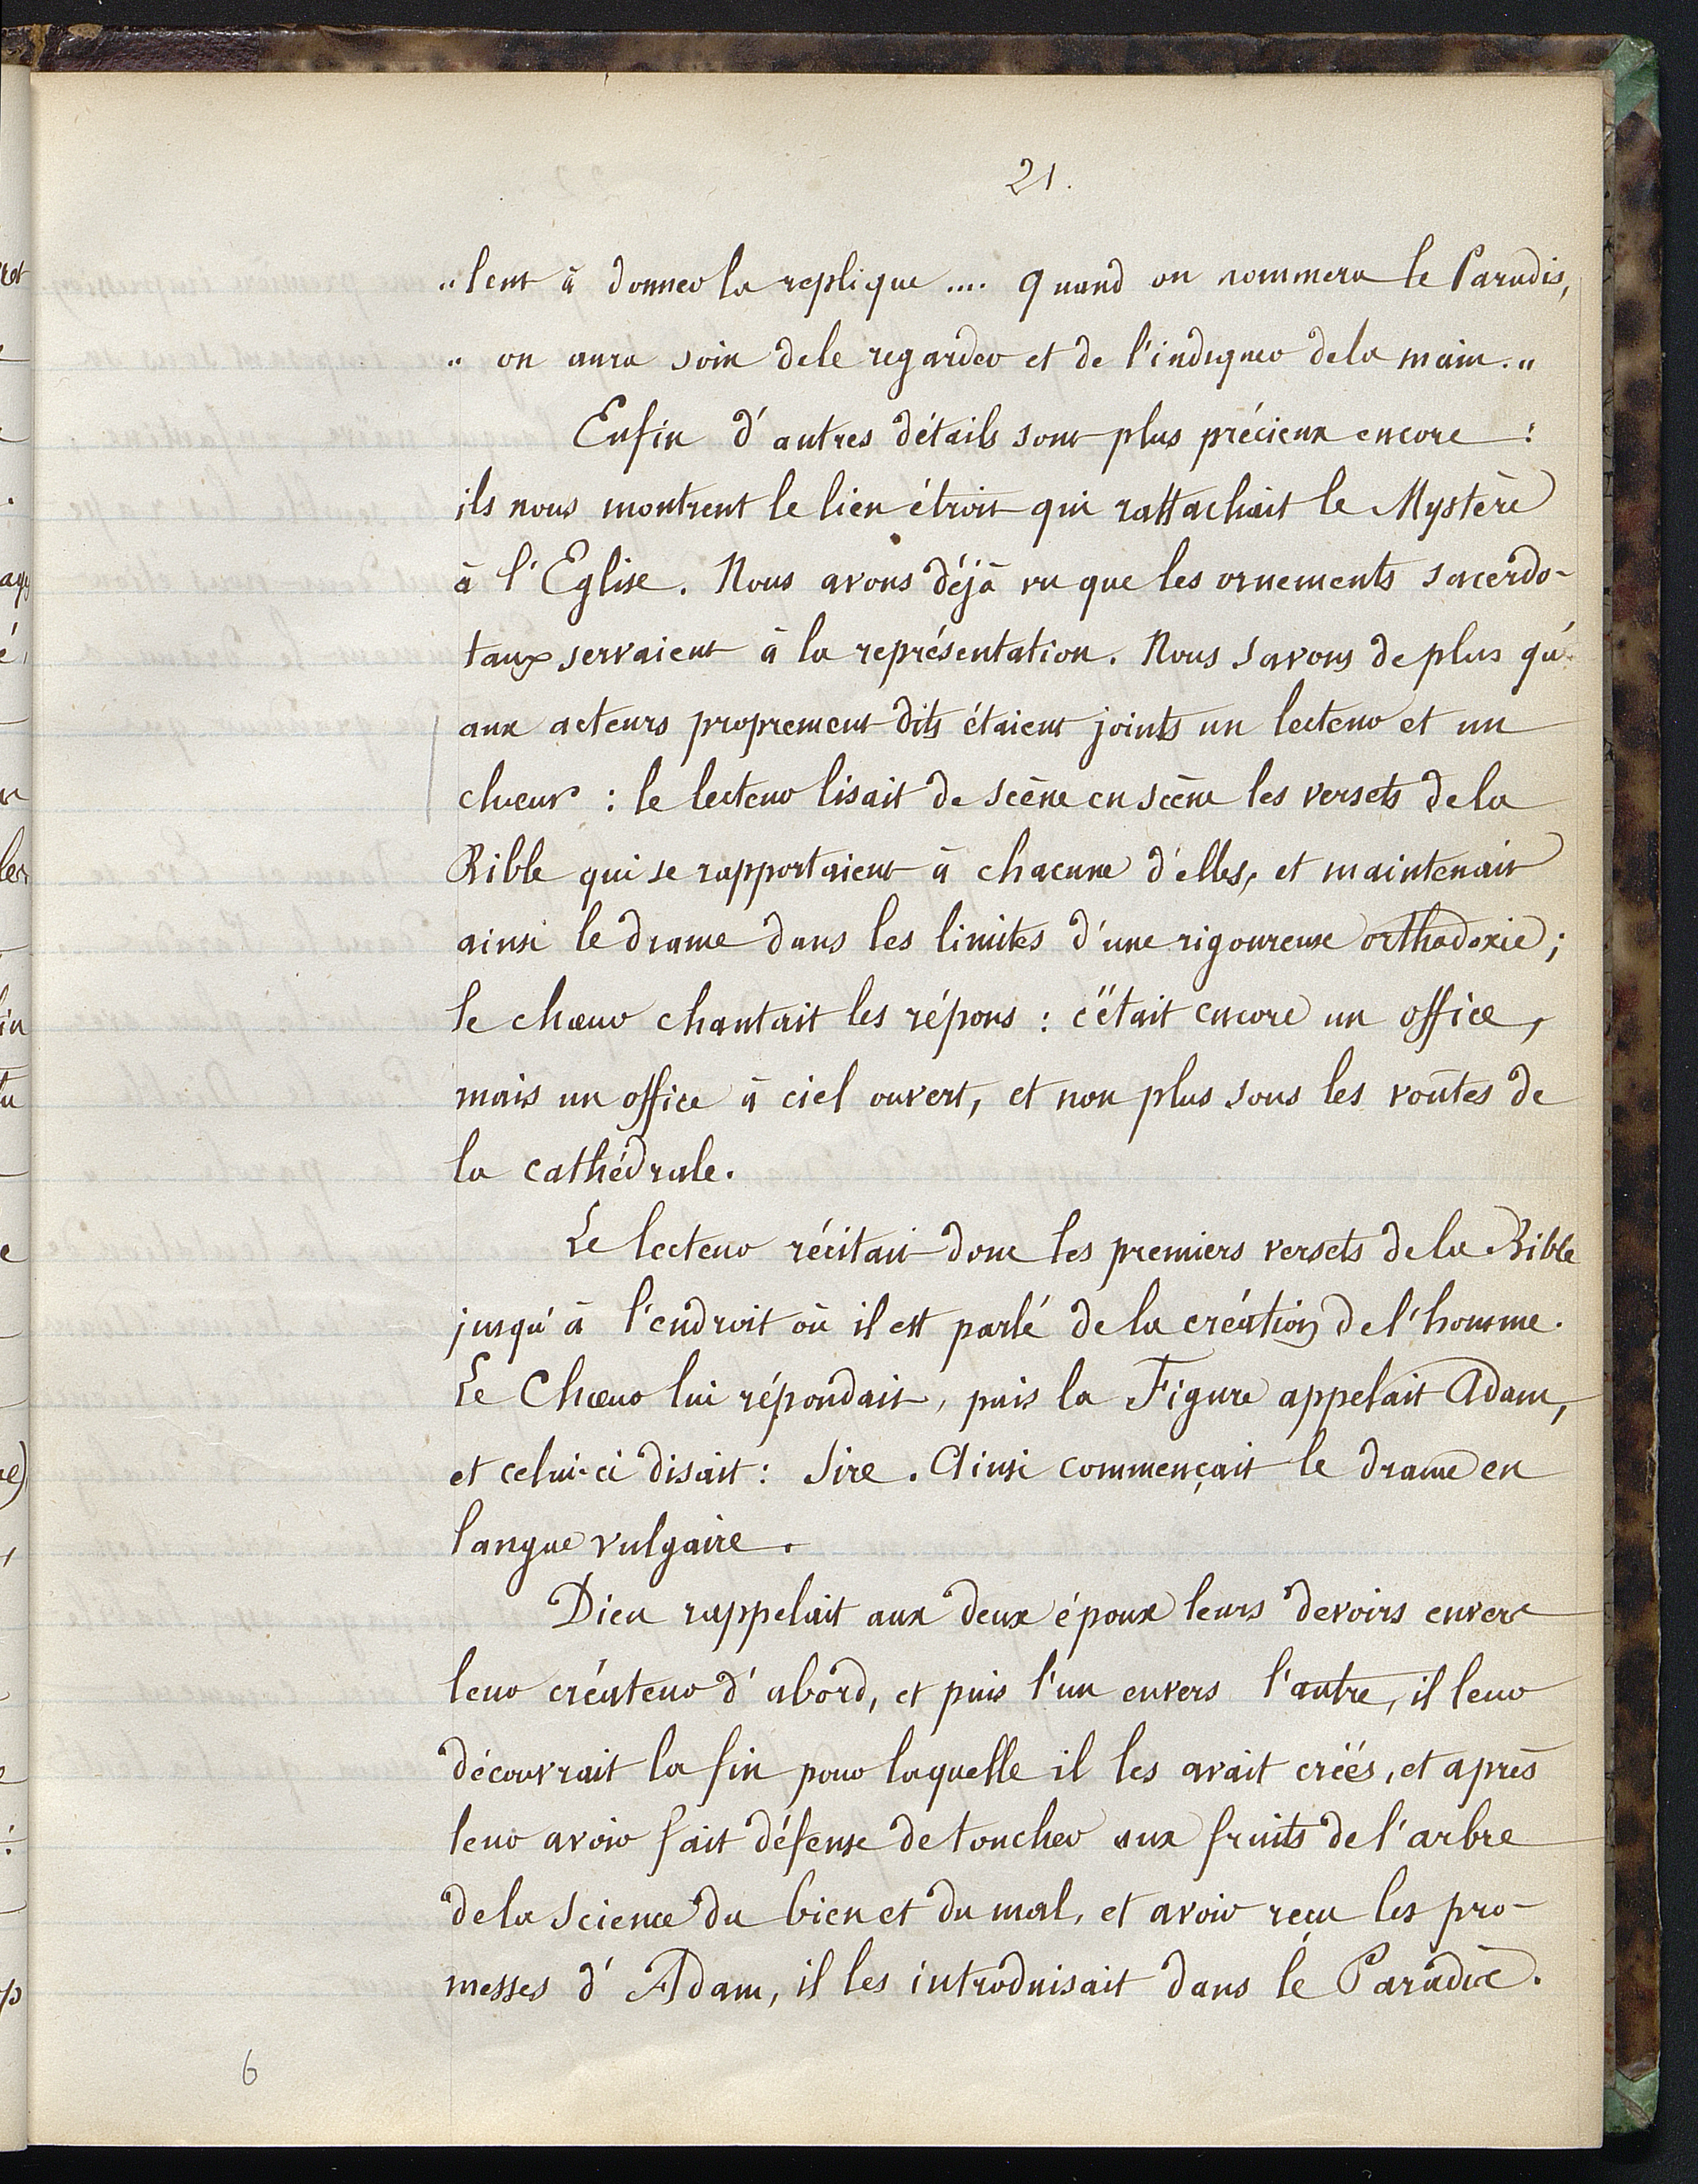 21.
„lent à donner la replique .... Quand on nommera le Paradis,
„ on aura soin de le regarder et de l'indiquer de la main.„
Enfin d'autres détails sont plus précieux encore :
ils nous montrent le lien étroit qui rattachait le Mystère
à l'Eglise. Nous avons déjà vu que les ornements sacerdo-
taux servaient à la représentation. Nous savons de plus qu'
aux acteurs proprement dits étaient joints un lecteur et un
chœur : le lecteur lisait de scène en scène les versets de la
Bible qui se rapportaient à chacune d'elles, et maintenait
ainsi le drame dans les limites d'une rigoureuse orthodoxie ;
le chœur chantait les répons : c'était encore un office,
mais un office à ciel ouvert, et non plus sous les voûtes de
la cathédrale.
Le lecteur récitait donc les premiers versets de la Bible
jusqu'à l'endroit où il est parlé de la création de l'homme.
Le Chœur lui répondait, puis la Figure appelait Adam,
et celui-ci disait : Sire. Ainsi commençait le drame en
langue vulgaire.
Dieu rappelait aux deux époux leurs devoirs envers
leur créateur d'abord, et puis l'un envers l'autre, il leur
découvrait la fin pour laquelle il les avait créés, et après
leur avoir fait défense de toucher aux fruits de l'arbre
de la science du bien et du mal, et avoir reçu les pro-
messes d'Adam, il les introduisait dans le Paradis.
6